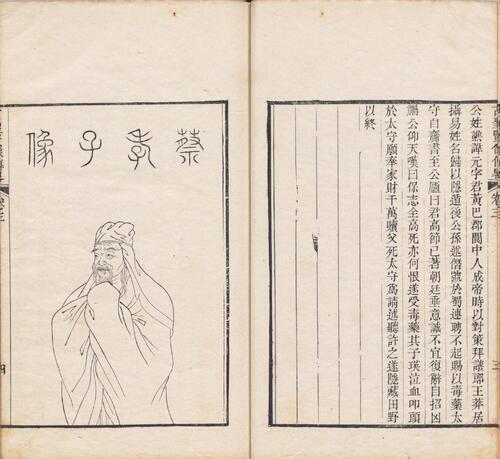 卷三
公姓譙諱元字君黃巴郡閬中人成帝時以對策拜議郎王莽居
攝易姓名歸以隱遁後公孫述僭號於蜀連聘不起賜以毒藥太
守自齎書至公廬曰君高節已著朝廷垂意誠不宜復辭自招凶
禍公仰天嘆曰保志全高死亦何恨遂受毒藥其子瑛泣血叩頭
於太守願奉家財千萬贖父死太守爲請述聽許之遂隱藏田野
以終
蔡孝子像